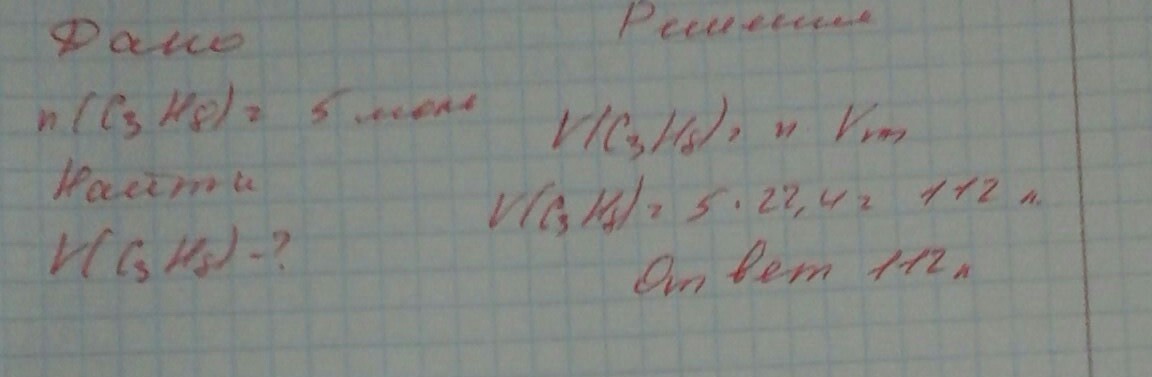 Дано
n(C3H8)= 5 моль
Найти
V(C3H8)-?
Решение
V(C3H8)= n Vm
V(C3H8)= 5·22,4= 112 л.
Ответ 112 л